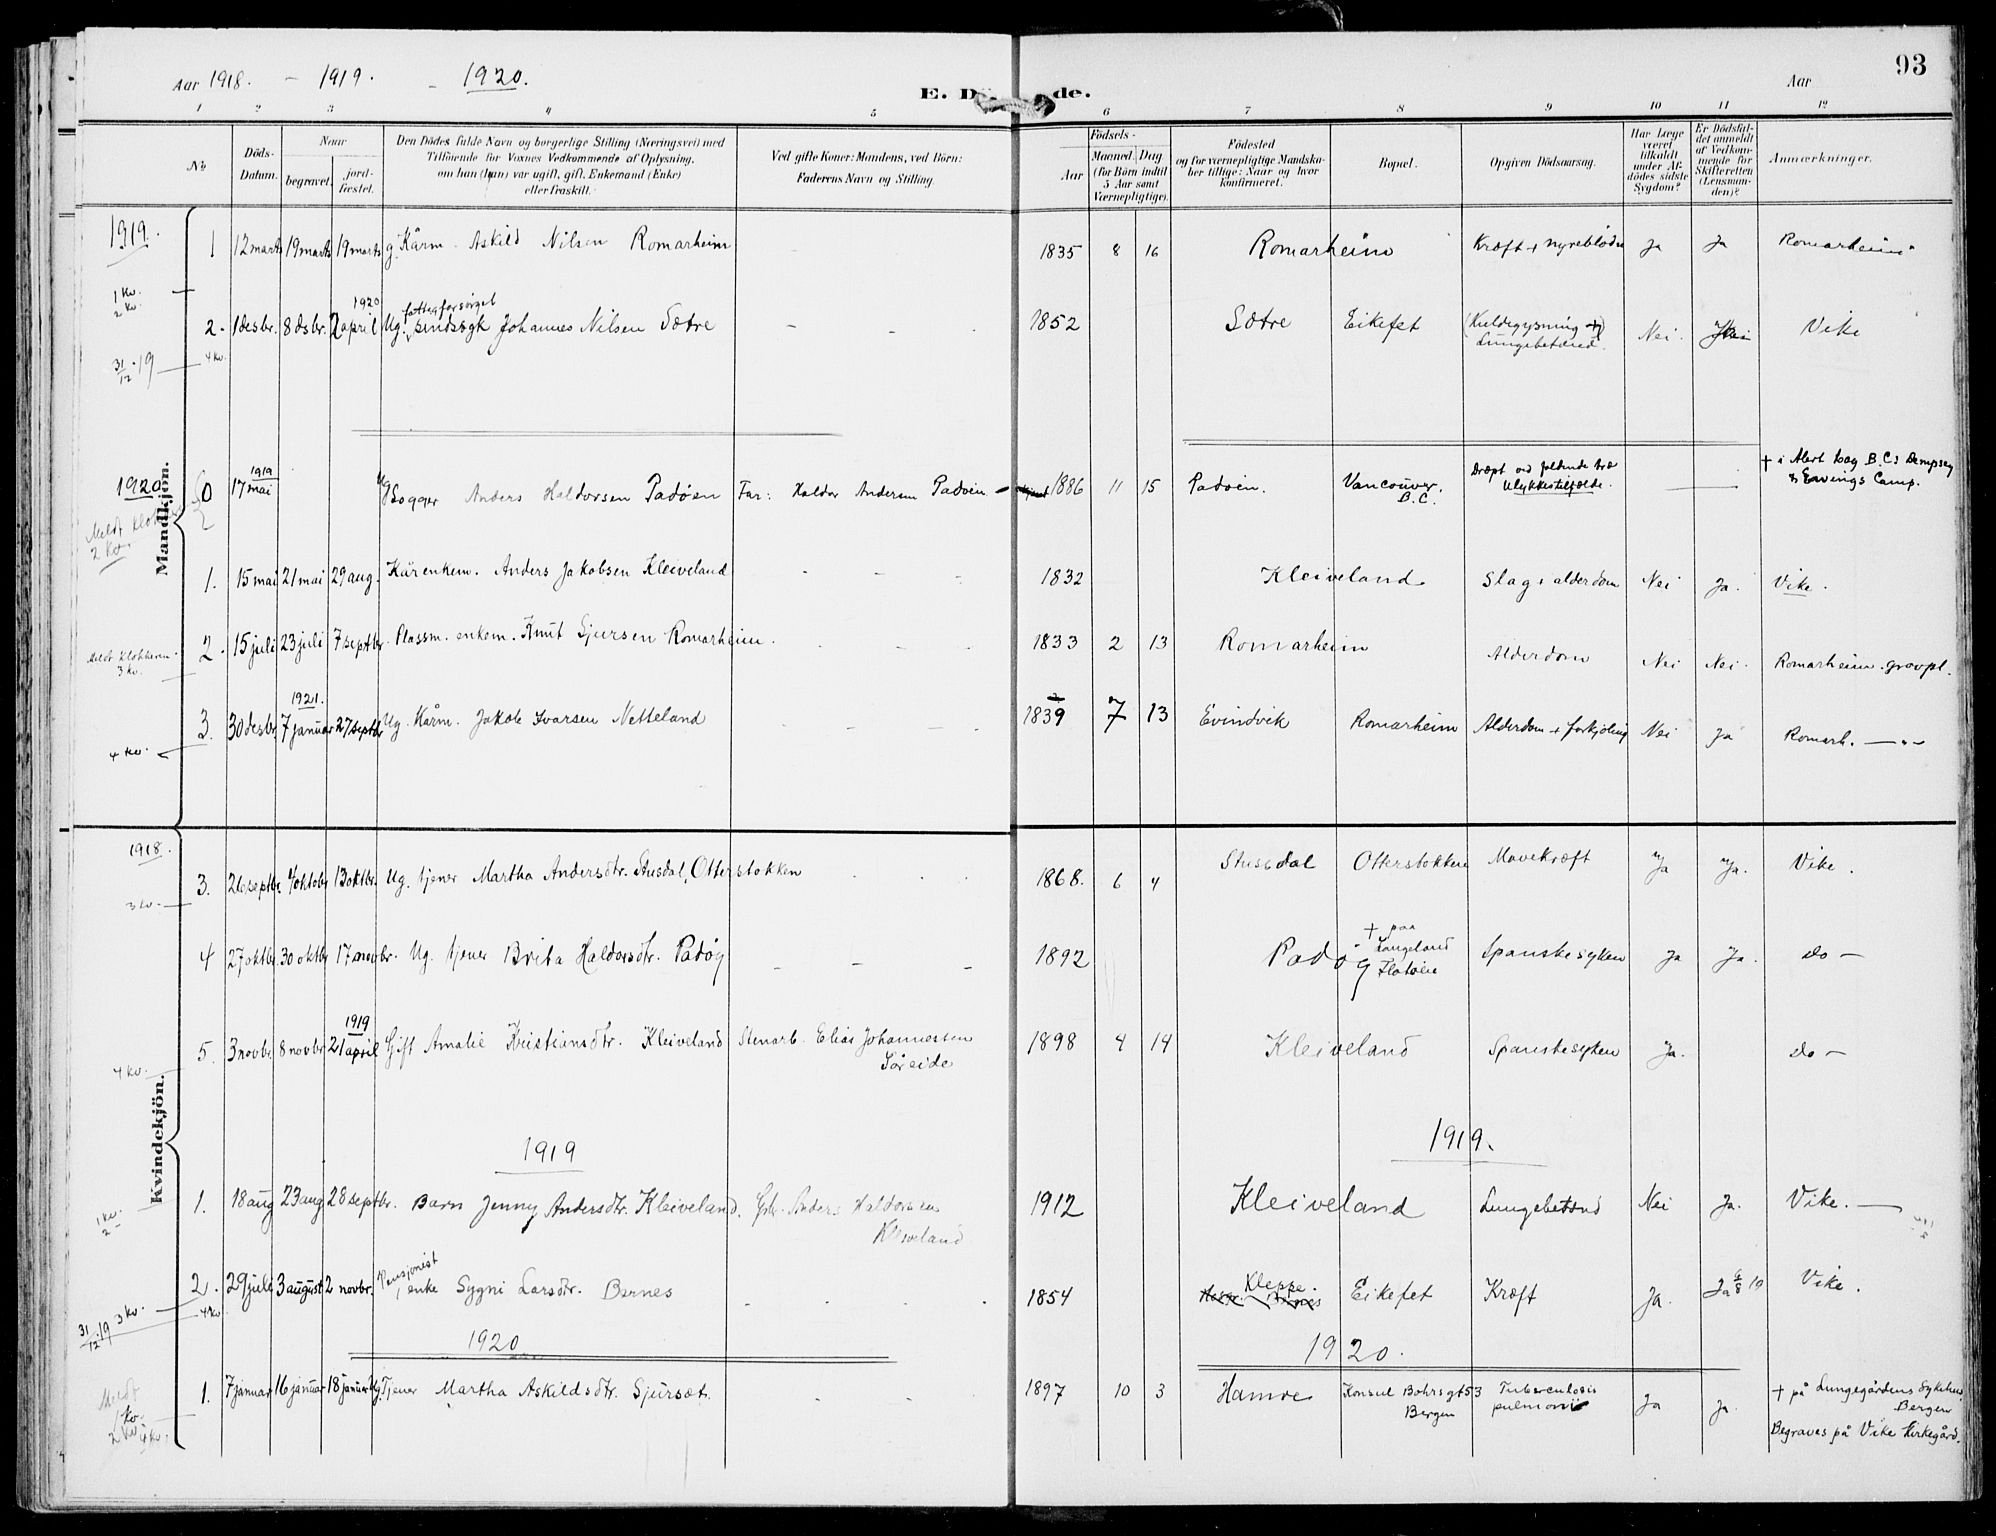 93
Aar 1918. - 1919. - 1920.
E. Dö de.
Aar
1 2 3 4 5 6 7 8 9 10 11 12
No
Döds-Datum.
Naar
begravet.
jord-fæstet.
Den Dödes fulde Navn og borgerlige Stilling (Næringsvei) med
Tilföiende for Voxnes Vedkommende af Oplysning,
om han (hun) var ugift, gift, Enkemand (Enke)
eller fraskilt.
Ved gifte Koner: Mandens, ved Börn:
Faderens Navn og Stilling.
Födsels-
Aar
Maaned. Dag.
(for Börn indtil
5 Aar samt
Værnepligtige).
Födested
og for værnepligtige Mandska-
ber tillige: Naar og hvor
konfirmeret.
Bopæl.
Opgiven Dödsaarsag.
Har Læge
været
tilkaldt
under Af-
dödes sidste
Sygdom?
Er Dödsfal-
det anmeldt
af Vedkom-
mende for
Skifteretten
(Lensman-
den)?
Anmærkninger.
Mandkjön.
1919.
1 12 marts 19 marts 19 marts g. Kårm. Askild Nilsen Romarheim - - 1835 8 16 Romarheim Kræft + nyreblødn Ja Ja Romarheim
1 Kv.
2 Kv
1920
fattigforsörget
2. 1 desbr. 8 dsbr. 2 april Ug. sindssyk Johannes Nilsen Sætre - - 1852 Sætre Eikefet (Kuldegysning +) Nei. Vike
Lungebetænd.
31/12 19 4 Kv.
1920
1919
0 17 mai Ug Logger Anders Haldorsen Padöen Far: Haldor Andersen Padöen 1886 11 15 Padöen. Vancouver. B.C. Dræpt ved faldende træ
Ulykkestilfælde.
+ i Alert bay B.C. i Dempsey
& Ewings Camp.
Meldt klokkeren
2 Kv.
1. 15 mai 21 mai 29 aug. Kår enkem. Anders Jakobsen Kleiveland - - - 1832 Kleiveland Slag i alderdom Nei Ja. Vike.
2. 15 juli 23 juli 7 septbr. Plassm. enkem. Knut Sjursen Romarheim. - - - 1833 2 13 Romarheim Alderdom Nei Nei. Romarheim. gravpl.
Meldt Klokkeren
3 kv.
1921.
3. 30 desbr. 7 januar 27 septbr Ug. Kårm. Jakob Ivarsen Netteland - - - 1839 7 13 Evindvik Romarheim Alderdom + forkjöling Nei Ja Romarh. — " -
4 kv.
Kvindekjön.
1918.
3. 26 septbr. 4 oktobr 13 oktbr. Ug. tjener Martha Andersdtr. Stusdal, Otterstokken 1868. 6 4 Stussdal Otterstokken Mavekræft Ja Ja. Vike.
3 kv.
4 27 oktbr. 30 oktbr 17 novbr. Ug. tjener Brita Haldorsdtr. Padöy - - - 1892 Padöy + paa
Langeland
Flatöin
Spanskesyken Ja Ja. do -
1919
5. 3 novbr 8 novbr 21 april Gift Amalie Kristiansdtr. Kleiveland Stenarb. Elias Johannessen
Söreide
1898 4 14 Kleiveland Spanskesyken Ja. do -
4 kv.
1919 1919.
1. 18 aug 23 aug 28 septbr. Barn Jenny Andersdtr. Kleiveland. Gbr. Anders Haldorsens
Kleiveland
1912 Kleiveland Lungebetænd Nei Ja. Vike. —
1 kv.
2 -
Pensjonist
2. 29 juli 3 august 2 novbr. enke Sygni Larsdtr. Bernes - - - 1854 Kleppe. Eikefet Kræft Ja. Ja 6/8 19 Vike.
3 kv. 4 kv
31/12 19
1920 1920.
1. 7 januar 16 januar 18 januar Ug. Tjener Martha Askildsdtr. Sjursæt. - - - 1897 10 3 Hamre Konsul Bohrsgt 53
Bergen
Tuberculosis
pulmonis
Ja Ja. + på Lungegårdens Sykehus
Bergen
Begraves på Vike kirkegård.
Meldt
1 kv.
2 kv 4 kv.